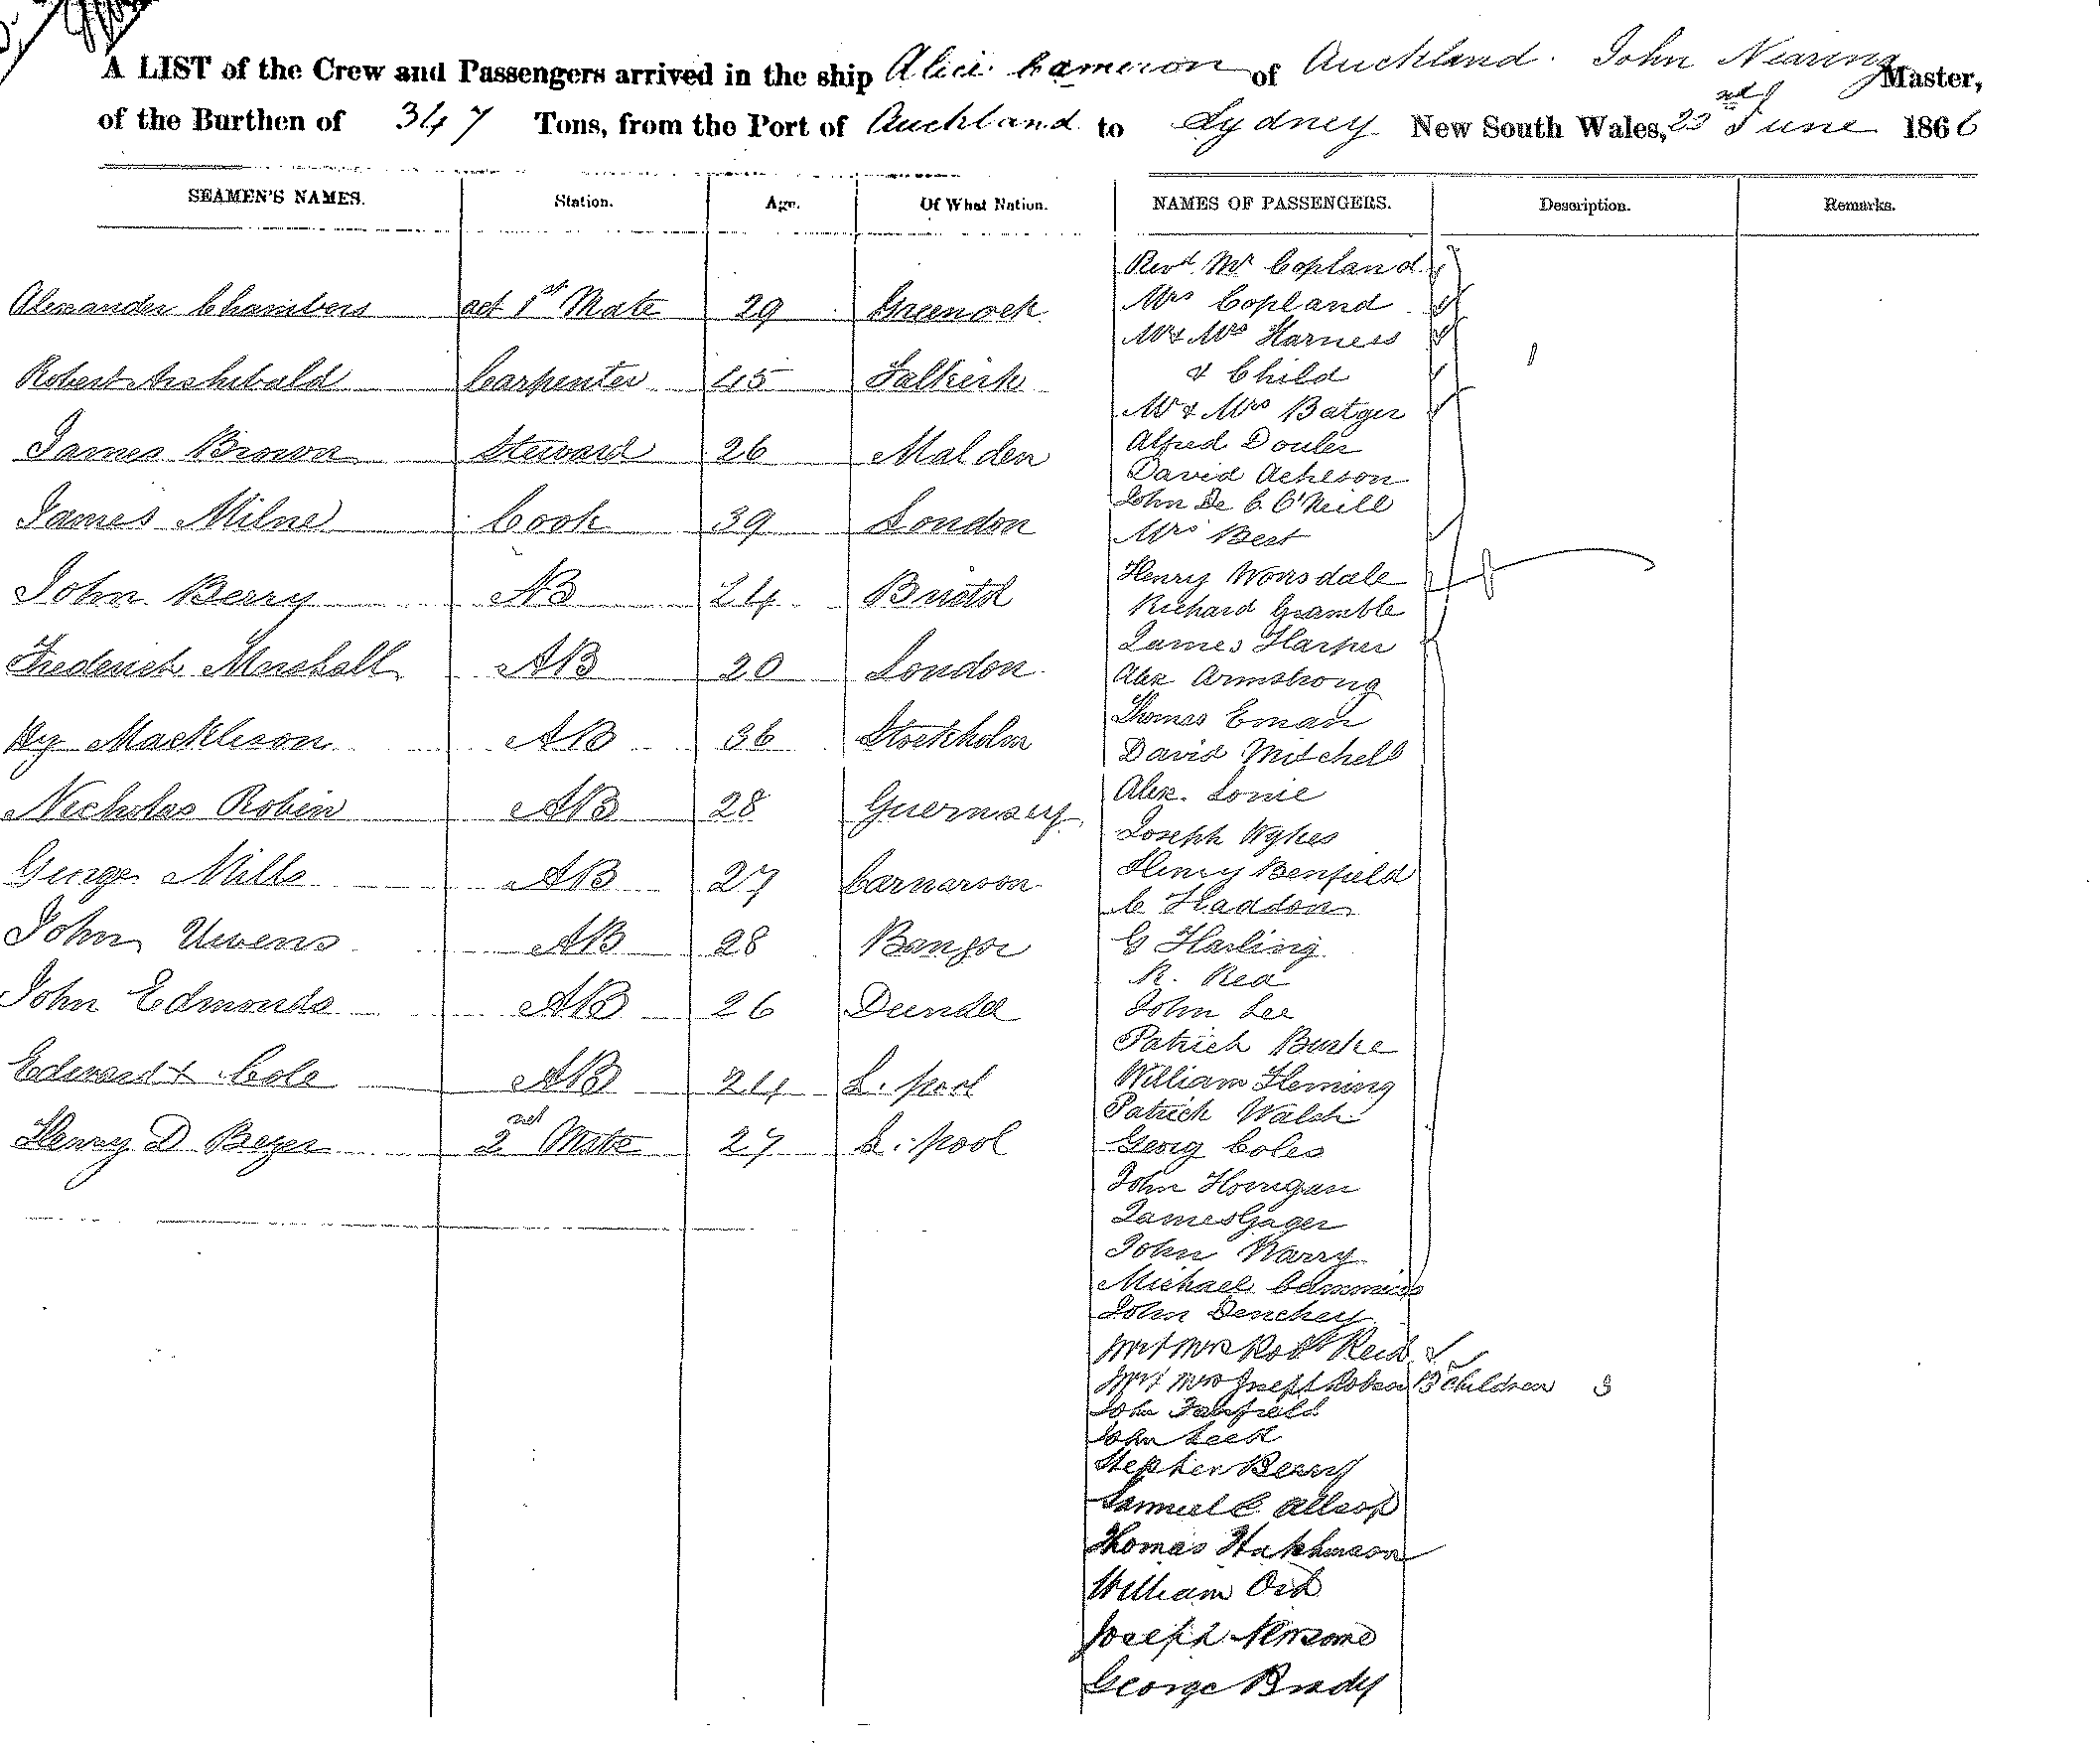 A LIST of the Crew and Passengers arrived in the ship Alice Cameron of Auckland. John Nearing Master,
of the Burthen of 347 Tons, from the Port of Auckland to Sydney New South Wales, 23rd June 1866
SEAMEN'S NAMES. Station. Age. Of What Nation. NAMES OF PASSENGERS. Description. Remarks.
Alexander Chambers act 1st Mate 29 Greenock
Robert Archibald Carpenter 45 Falkirk
James Brown Steward 26 Malden
James Milne Cook 39 London
John Berry AB 24 Bristol
Frederick Marshall AB 20 London
Hy Mackleson AB 36 Stockholm
Nicholas Robin AB 28 Guernsey
George Mills AB 27 Carnarvon
John Uwens AB 28 Bangor
John Edmonds AB 26 Dundee
Edward Cole AB 24 L.pool
Henry D Beyer 2nd Mate 27 L.pool
Revd Mr Copland
Mrs Copland
Mr & Mrs Harness
& Child 1
Mr & Mrs Batger
Alfred Douler
David Acheson
John De C. O'Neill
Mrs Best
Henry Worsdale
Richard Gramble
James Harper
Alex Armstrong
Thomas Eman
David Mitchell
Alex. Lonie
Joseph Wykes
Henry Benfield
C Haddon
G Harling
R. Rea
John Lee
Patrick Burke
William Fleming
Patrick Walsh
Georg Coles
John Horrigan
James Gager
John Warry
Michael Cammins
John Denehey
Mr & Mrs Robt Reid
Mr & Mrs Joseph Robson 3 children 3
John Fairfield
John Leech
Stephen Berry
Samuel C Allsop
Thomas Hutchinson
William Ord
Joseph Newsome
George Brady